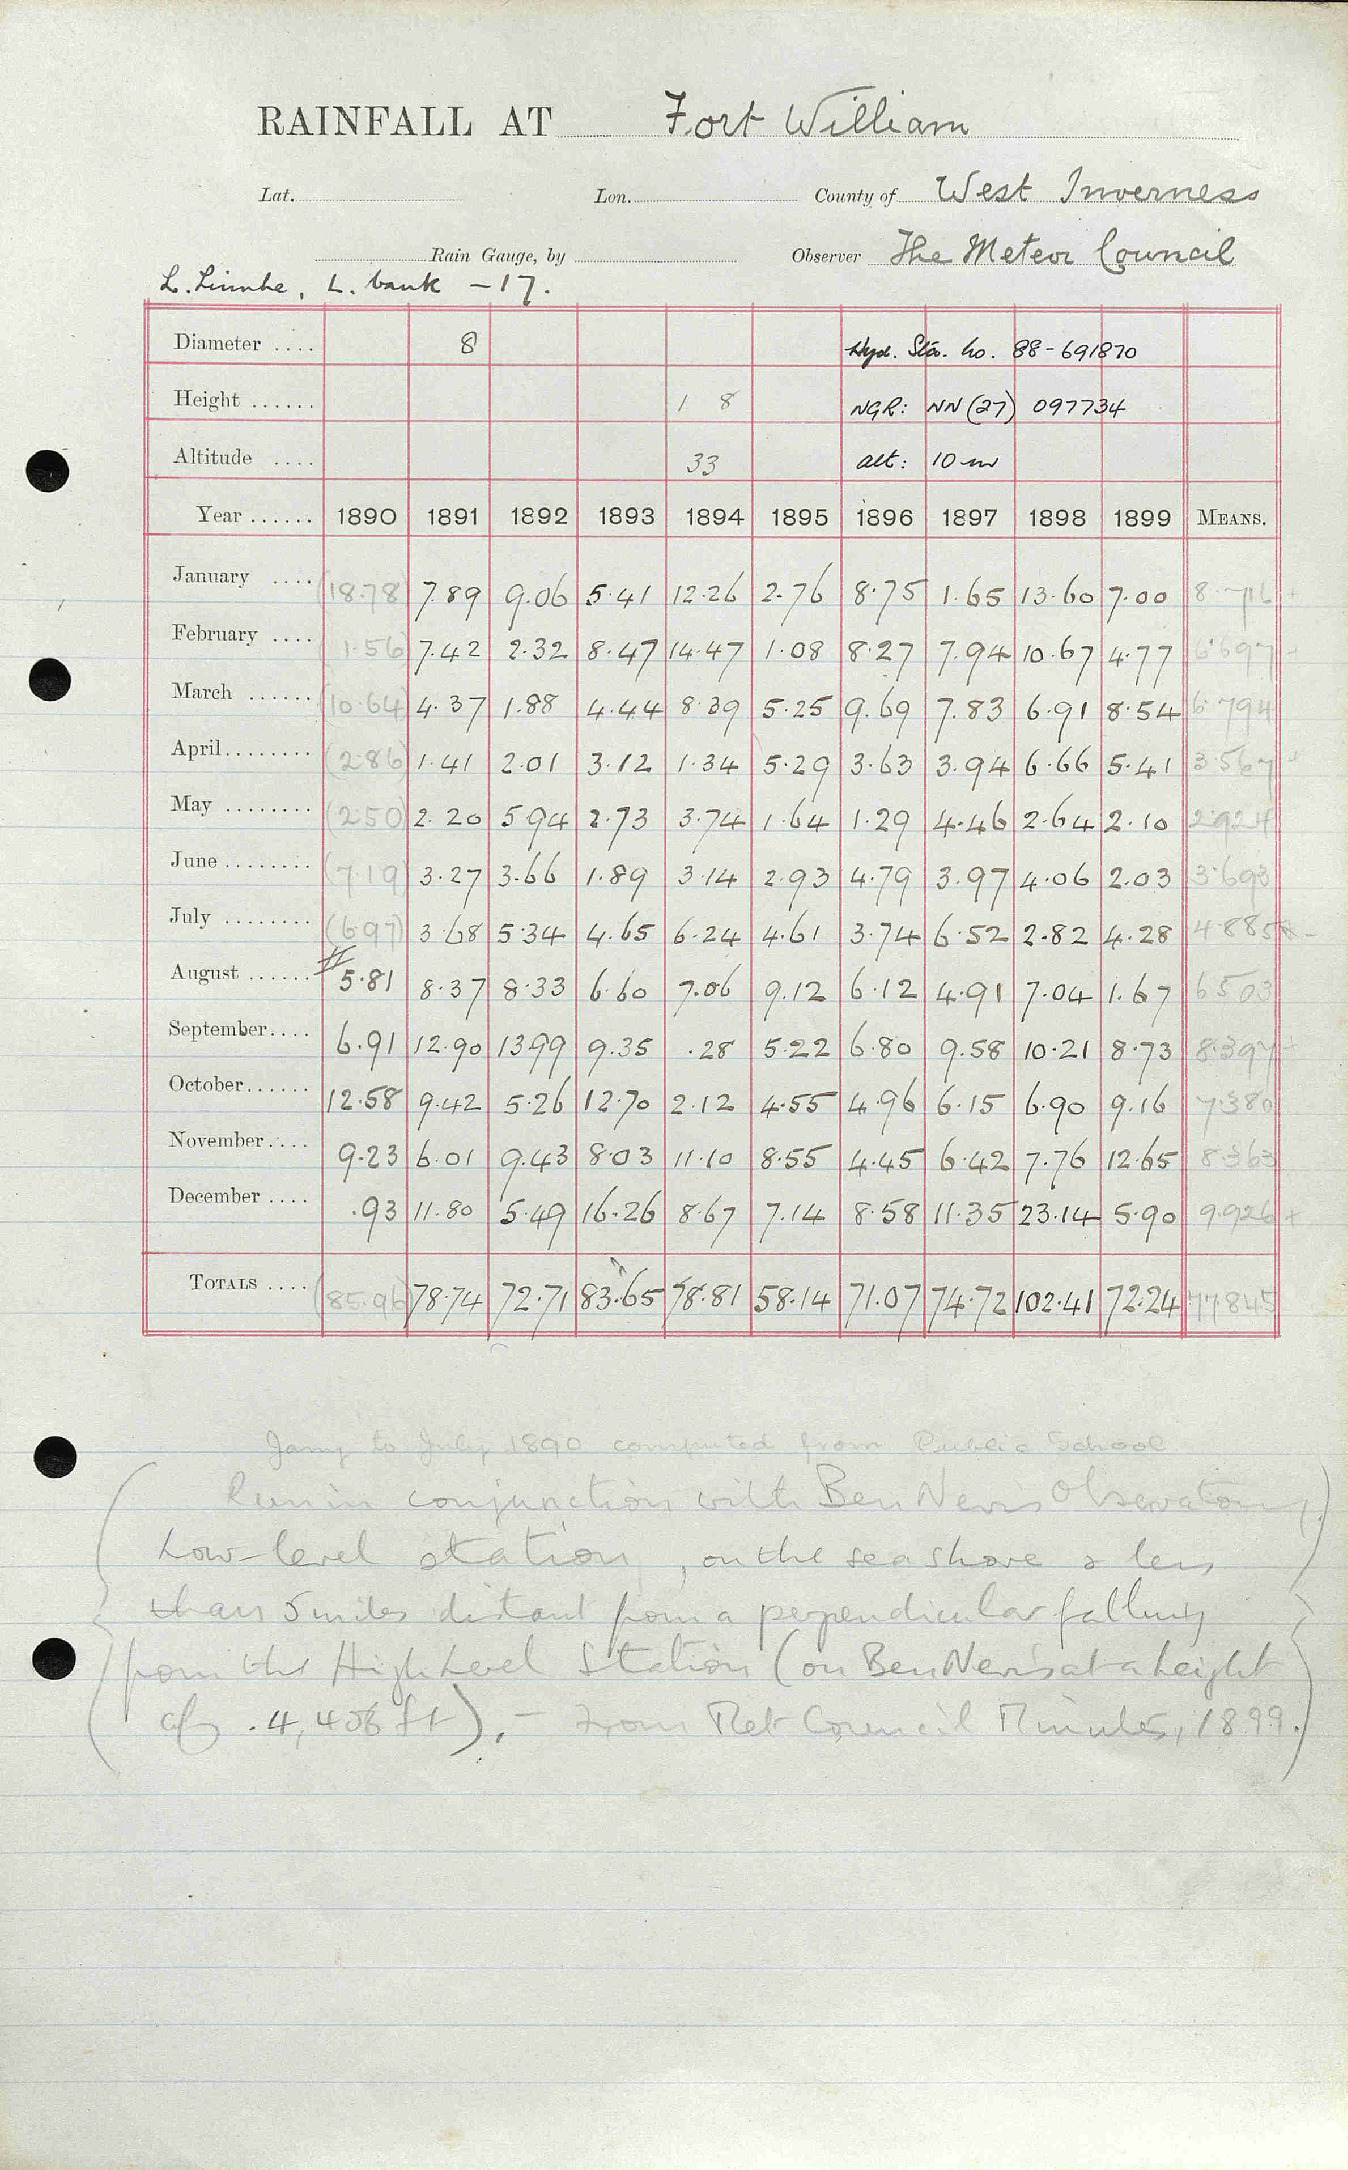 RAINFALL AT Fort William
Lat. Lon. County of West Inverness
Rain Gauge, by Observer The Meteor Council
L. Linnhe, L. bank - 17.
Diameter .... 8 Hyd. Sta. No. 88-691870
Height ...... 1 8 NGR: NN (27) 097734
Altitude .... 33 alt: 10 m
Year ...... 1890 1891 1892 1893 1894 1895 1896 1897 1898 1899 MEANS.
January .... (18.78) 7.89 9.06 5.41 12.26 2.76 8.75 1.65 13.60 7.00 8.716 +
February .... (1.56) 7.42 2.32 8.47 14.47 1.08 8.27 7.94 10.67 4.77 6.697 -
March ...... (10.64) 4.37 1.88 4.44 8.39 5.25 9.69 7.83 6.91 8.54 6.794
April ........ (2.86) 1.41 2.01 3.12 1.34 5.29 3.63 3.94 6.66 5.41 3.567 +
May ........ (2.50) 2.20 5.94 2.73 3.74 1.64 1.29 4.46 2.64 2.10 2.924
June ........ (7.19) 3.27 3.66 1.89 3.14 2.93 4.79 3.97 4.06 2.03 3.693
July ........ (6.97) 3.68 5.34 4.65 6.24 4.61 3.74 6.52 2.82 4.28 4.885
August ...... # 5.81 8.37 8.33 6.60 7.06 9.12 6.12 4.91 7.04 1.67 6.503
September .... 6.91 12.90 13.99 9.35 .28 5.22 6.80 9.58 10.21 8.73 8.397 +
October ...... 12.58 9.42 5.26 12.70 2.12 4.55 4.96 6.15 6.90 9.16 7.380
November .... 9.23 6.01 9.43 8.03 11.10 8.55 4.45 6.42 7.76 12.65 8.363
December .... .93 11.80 5.49 16.26 8.67 7.14 8.58 11.35 23.14 5.90 9.926 +
TOTALS .... (85.96) 78.74 72.71 83.65 78.81 58.14 71.07 74.72 102.41 72.24 77.845
Jany to July 1890 computed from Public School
(Run in conjunction with Ben Nevis Observatory.
Low-level station, on the sea shore & less
than 5 miles distant from a perpendicular falling
from the High Level Station (on Ben Nevis at a height
of 4,406 ft). - From Met Council Minutes, 1899.)